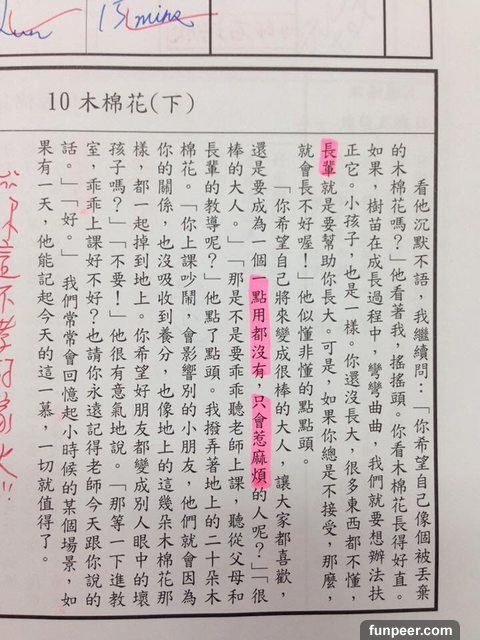 15 mins
10 木棉花(下)
看他沉默不語,我繼續問:「你希望自己像個被丟棄
的木棉花嗎?」他看著我,搖搖頭。你看木棉花長得好直。
如果,樹苗在成長過程中,彎彎曲曲,我們就要想辦法扶
正它。小孩子,也是一樣。你還沒長大,很多東西都不懂,
長輩就是要幫助你長大。可是,如果你總是不接受,那麼,
就會長不好喔!」他似懂非懂的點點頭。
「你希望自己將來變成很棒的大人,讓大家都喜歡,
還是要成為一個一點用都沒有,只會惹麻煩的人呢?」「很
棒的大人。」「那是不是要乖乖聽老師上課,聽從父母和
長輩的教導呢?」他點了點頭。我撥弄著地上的二十朵木
棉花。「你上課吵鬧,會影響別的小朋友,他們就會因為
你的關係,也沒吸收到養分,也像地上的這幾朵木棉花那
樣,都一起掉到地上。你希望好朋友都變成別人眼中的壞
孩子嗎?」「不要!」他很有意氣地說。「那等一下進教
室,乖乖上課好不好?也請你永遠記得老師今天跟你說的
話。」「好。」 我們常常會回憶起小時候的某個場景,如
果有一天,他能記起今天的這一幕,一切就值得了。
funpeer.com